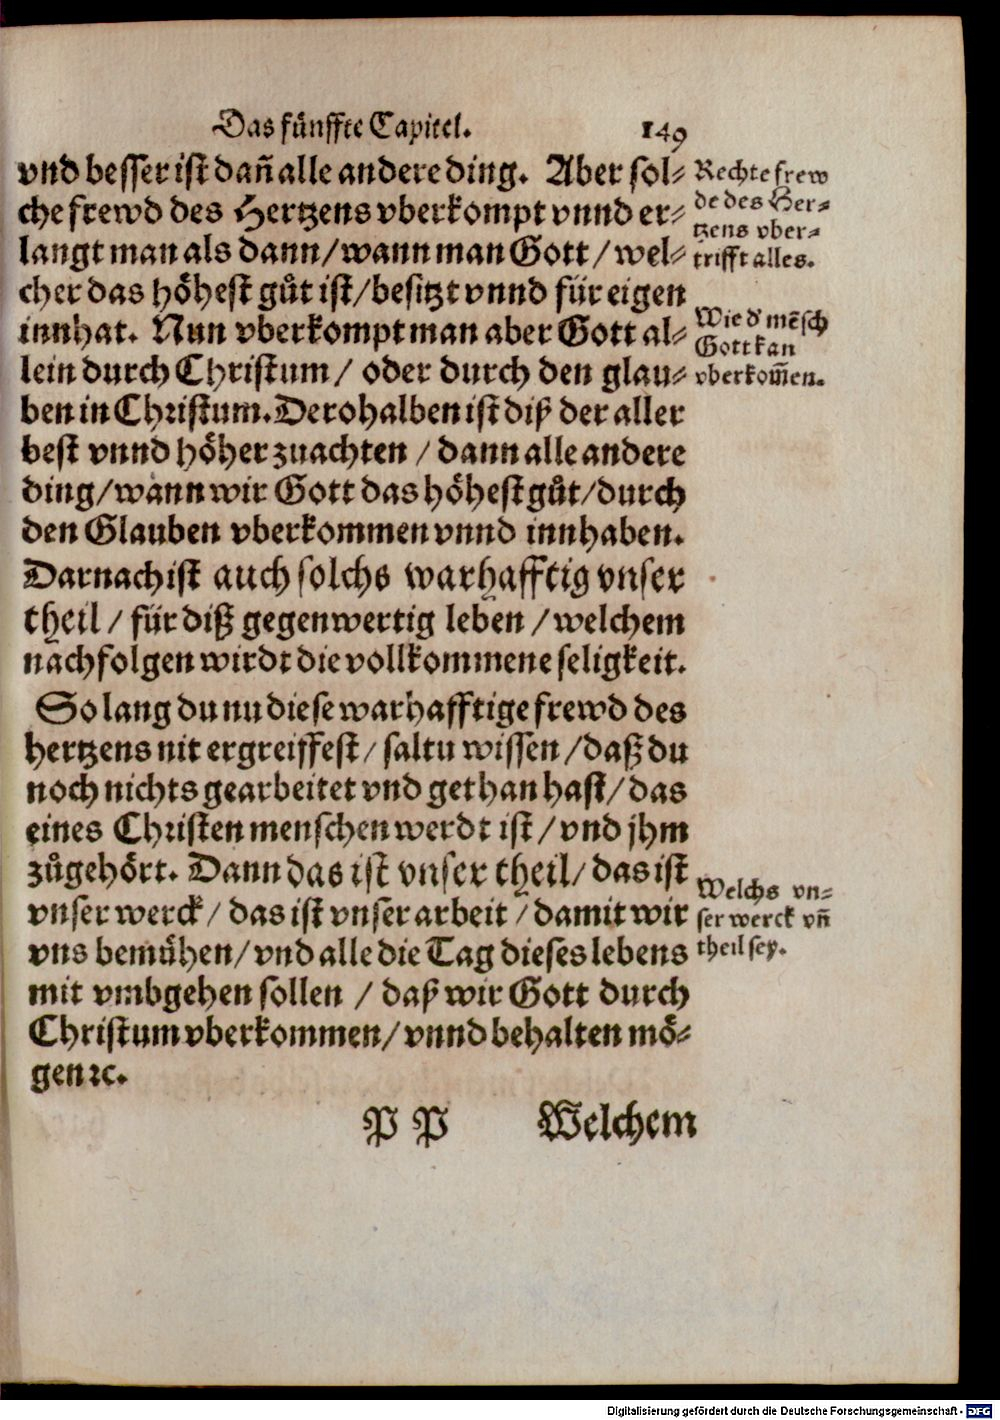 Das fünffte Capitel. 149
vnd besser ist dañ alle andere ding. Aber sol⸗
che frewd des Hertzens vberkompt vnnd er⸗
langt man als dann / wann man Gott / wel⸗
cher das höhest gůt ist / besitzt vnnd für eigen
innhat. Nun vberkompt man aber Gott al⸗
lein durch Christum / oder durch den glau⸗
ben in Christum. Derohalben ist diß der aller
best vnnd höher zuachten / dann alle andere
ding / wann wir Gott das höhest gůt / durch
den Glauben vberkommen vnnd innhaben.
Darnach ist auch solchs warhafftig vnser
theil / für diß gegenwertig leben / welchem
nachfolgen wirdt die vollkommene seligkeit.
So lang du nu diese warhafftige frewd des
hertzens nit ergreiffest / saltu wissen / daß du
noch nichts gearbeitet vnd gethan hast / das
eines Christen menschen werdt ist / vnd jhm
zůgehört. Dann das ist vnser theil / das ist
vnser werck / das ist vnser arbeit / damit wir
vns bemühen / vnd alle die Tag dieses lebens
mit vmbgehen sollen / daß wir Gott durch
Christum vberkommen / vnnd behalten mö⸗
gen ꝛc.
Rechte frew
de des Her⸗
tzens vber⸗
trifft alles.
Wie d' mēsch
Gott kan
vberkom̃en.
Welchs vn⸗
ser werck vñ
theil sey.
P P Welchem
Digitalisierung gefördert durch die Deutsche Forschungsgemeinschaft - DFG